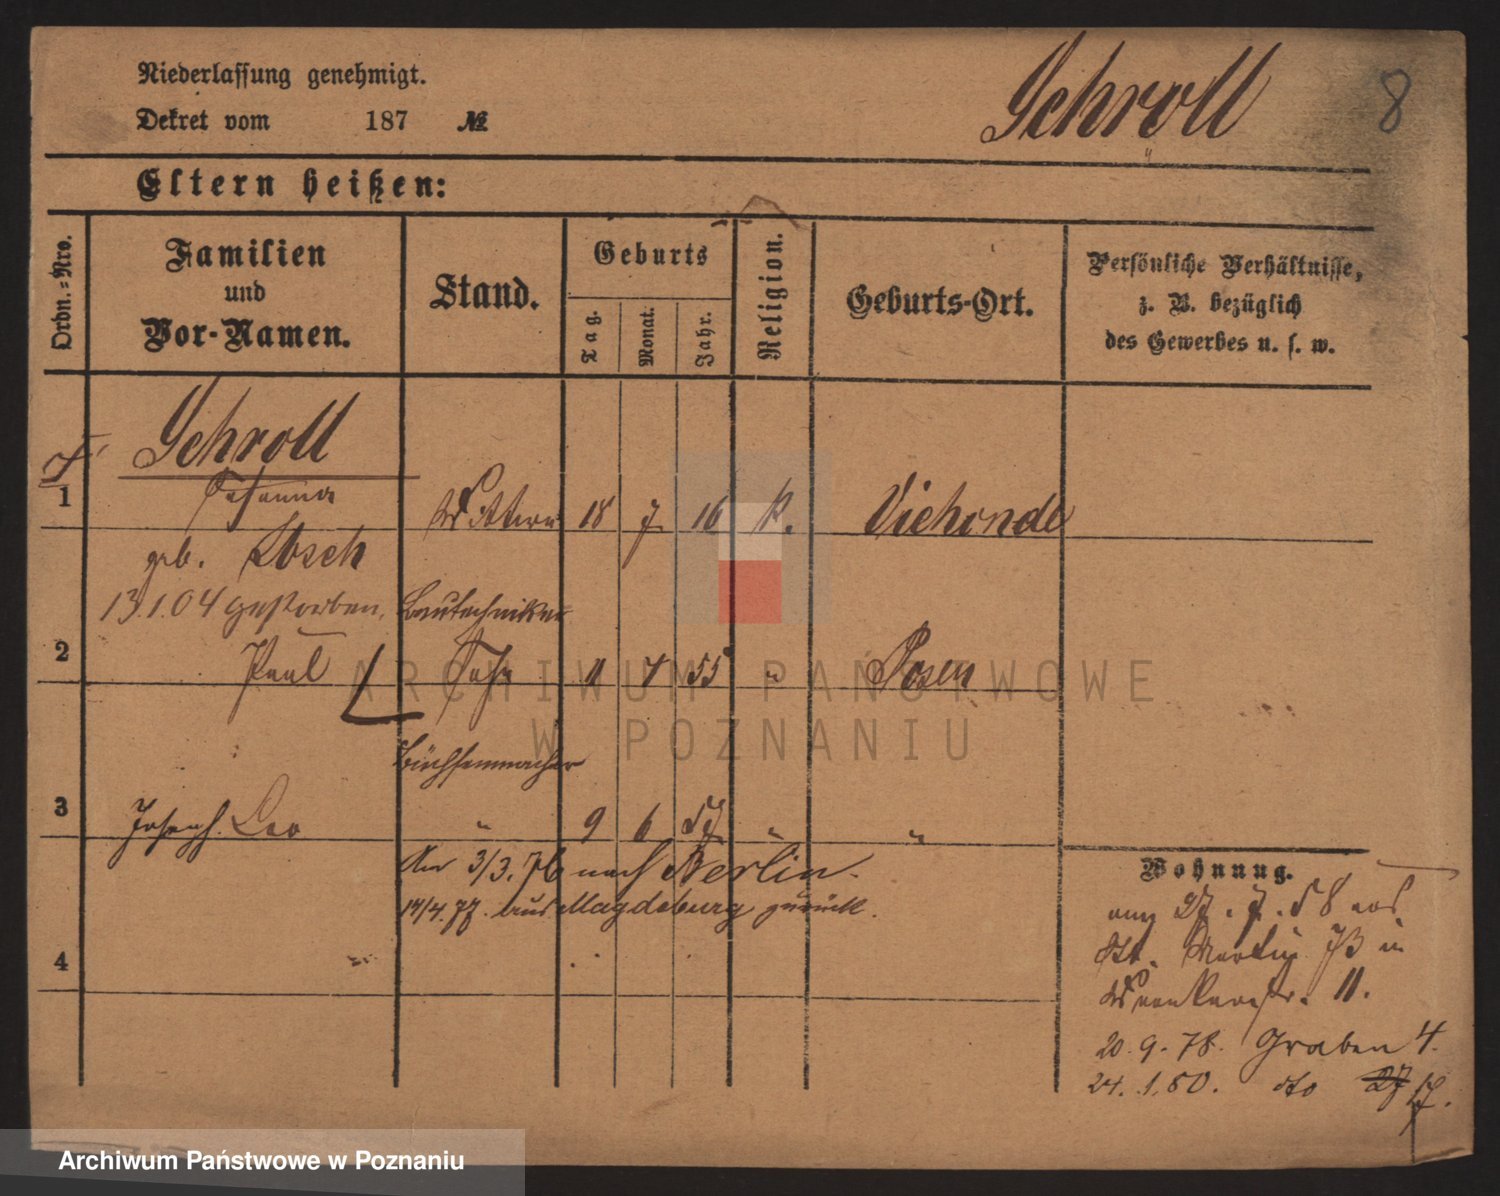 Niederlassung genehmigt.
Dekret vom 187 №
Schroll
8
Eltern heißen:
Ordn.-Nro.
Familien
und
Vor-Namen.
Stand.
Geburts
Tag.
Monat.
Jahr.
Religion.
Geburts-Ort.
Persönliche Verhältnisse,
z. B. bezüglich
des Gewerbes u. s. w.
Schroll
1 Johanna Wittwe 18 7 16 k. Viehonde
geb. Losch
13.1.04 gestorben. Bautechniker
2 Paul Sohn 11 7 55 " Posen
Büchsenmacher
3 Joseph Leo " 9 6 57 " "
3/3. 76 nach Berlin.
14/4. 77. aus Magdeburg zurück.
4
Wohnung.
27. 7. 58
St. Martin 73 in
11.
20. 9. 78. Graben 4.
24. 1. 80. dto 27 17.
ARCHIWUM PAŃSTWOWE
W POZNANIU
Archiwum Państwowe w Poznaniu